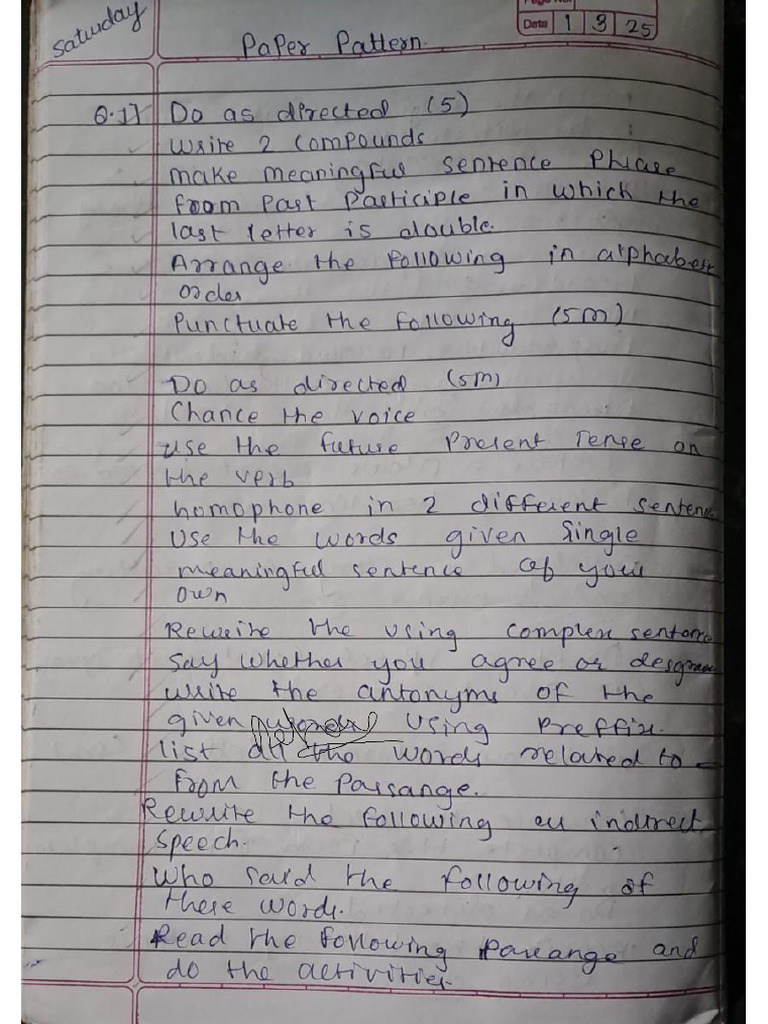 Saturday
Page No.
Date 1 3 25
Paper Pattern.
Q.1] Do as directed (5)
Write 2 compounds
make meaningful sentence Phrase
from Past Participle in which the
last letter is double.
Arrange the following in alphabet
order
Punctuate the following (5m)
Do as directed (5m)
Chance the voice
use the future Present Tense on
the verb
homophone in 2 different sentenc
Use the words given Single
meaningful sentence of your
own
Rewrite the using complex sentence
Say whether you agree or desgree
write the antonyms of the
given using Preffix.
list all the words related to -
from the Passange.
Rewrite the following in indirect
speech.
Who said the following of
these words.
Read the following Passange and
do the activities.